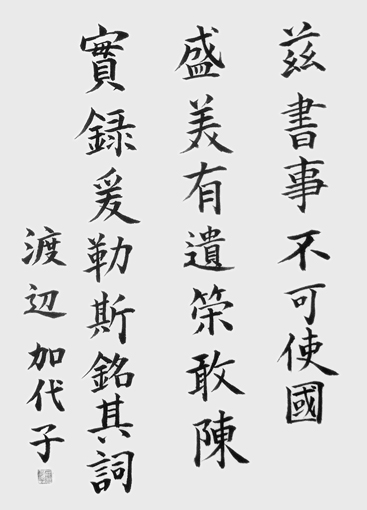 茲書事不可使國
盛美有遺榮敢陳
實録爰勒斯銘其詞
渡辺加代子